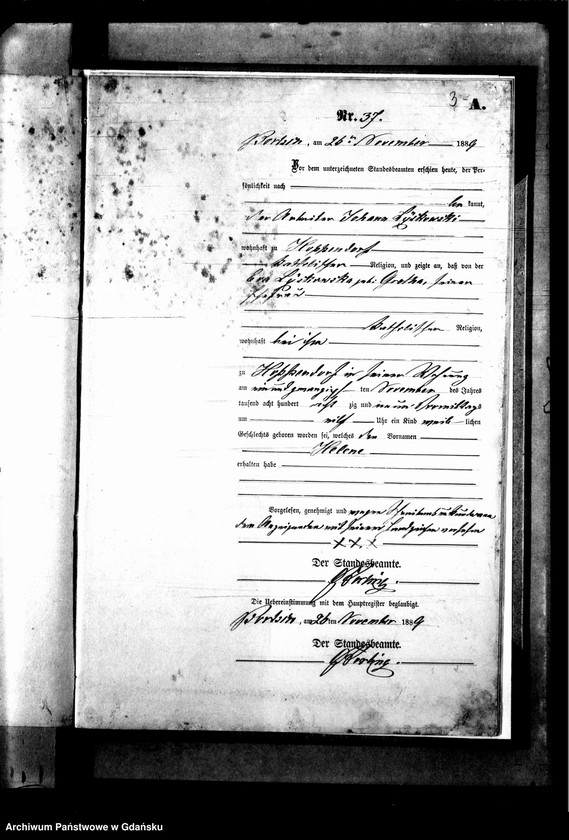 3 A.
Nr. 37.
am 26ten November 1889
Vor dem unterzeichneten Standesbeamten erschien heute, der Per-
sönlichkeit nach
kannt,
der Arbeiter Johann
wohnhaft zu Hoppendorf
katholischer Religion, und zeigte an, daß von der
geb. seiner
Ehefrau
katholischer Religion,
wohnhaft bei ihm
zu Hoppendorf in seiner Wohnung
am ein und zwanzigsten November des Jahres
tausend acht hundert acht zig und neun Vormittags
um elf Uhr ein Kind weib lichen
Geschlechts geboren worden sei, welches den Vornamen
Helene
erhalten habe
Vorgelesen, genehmigt und wegen Schreibensunkunde von
dem Anzeigenden mit seinem Handzeichen versehen
XXX
Der Standesbeamte.
Die Uebereinstimmung mit dem Hauptregister beglaubigt.
am 26ten November 1889
Der Standesbeamte.
Archiwum Państwowe w Gdańsku